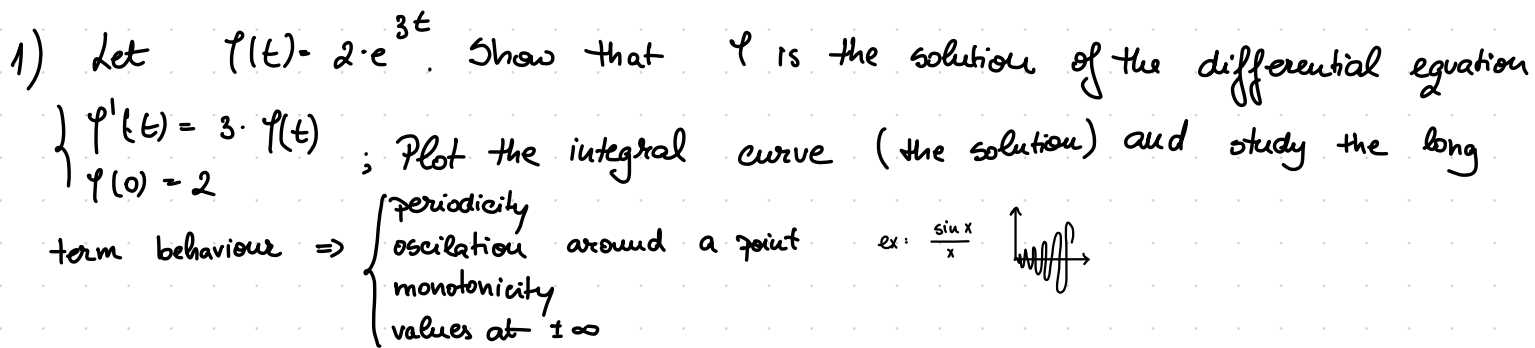 1) Let φ(t) = 2·e^{3t}. Show that φ is the solution of the differential equation
{ φ'(t) = 3·φ(t)
φ(0) = 2 ; Plot the integral curve (the solution) and study the long
term behaviour ⇒ { periodicity
oscilation around a point ex: sin x / x
monotonicity
values at ±∞